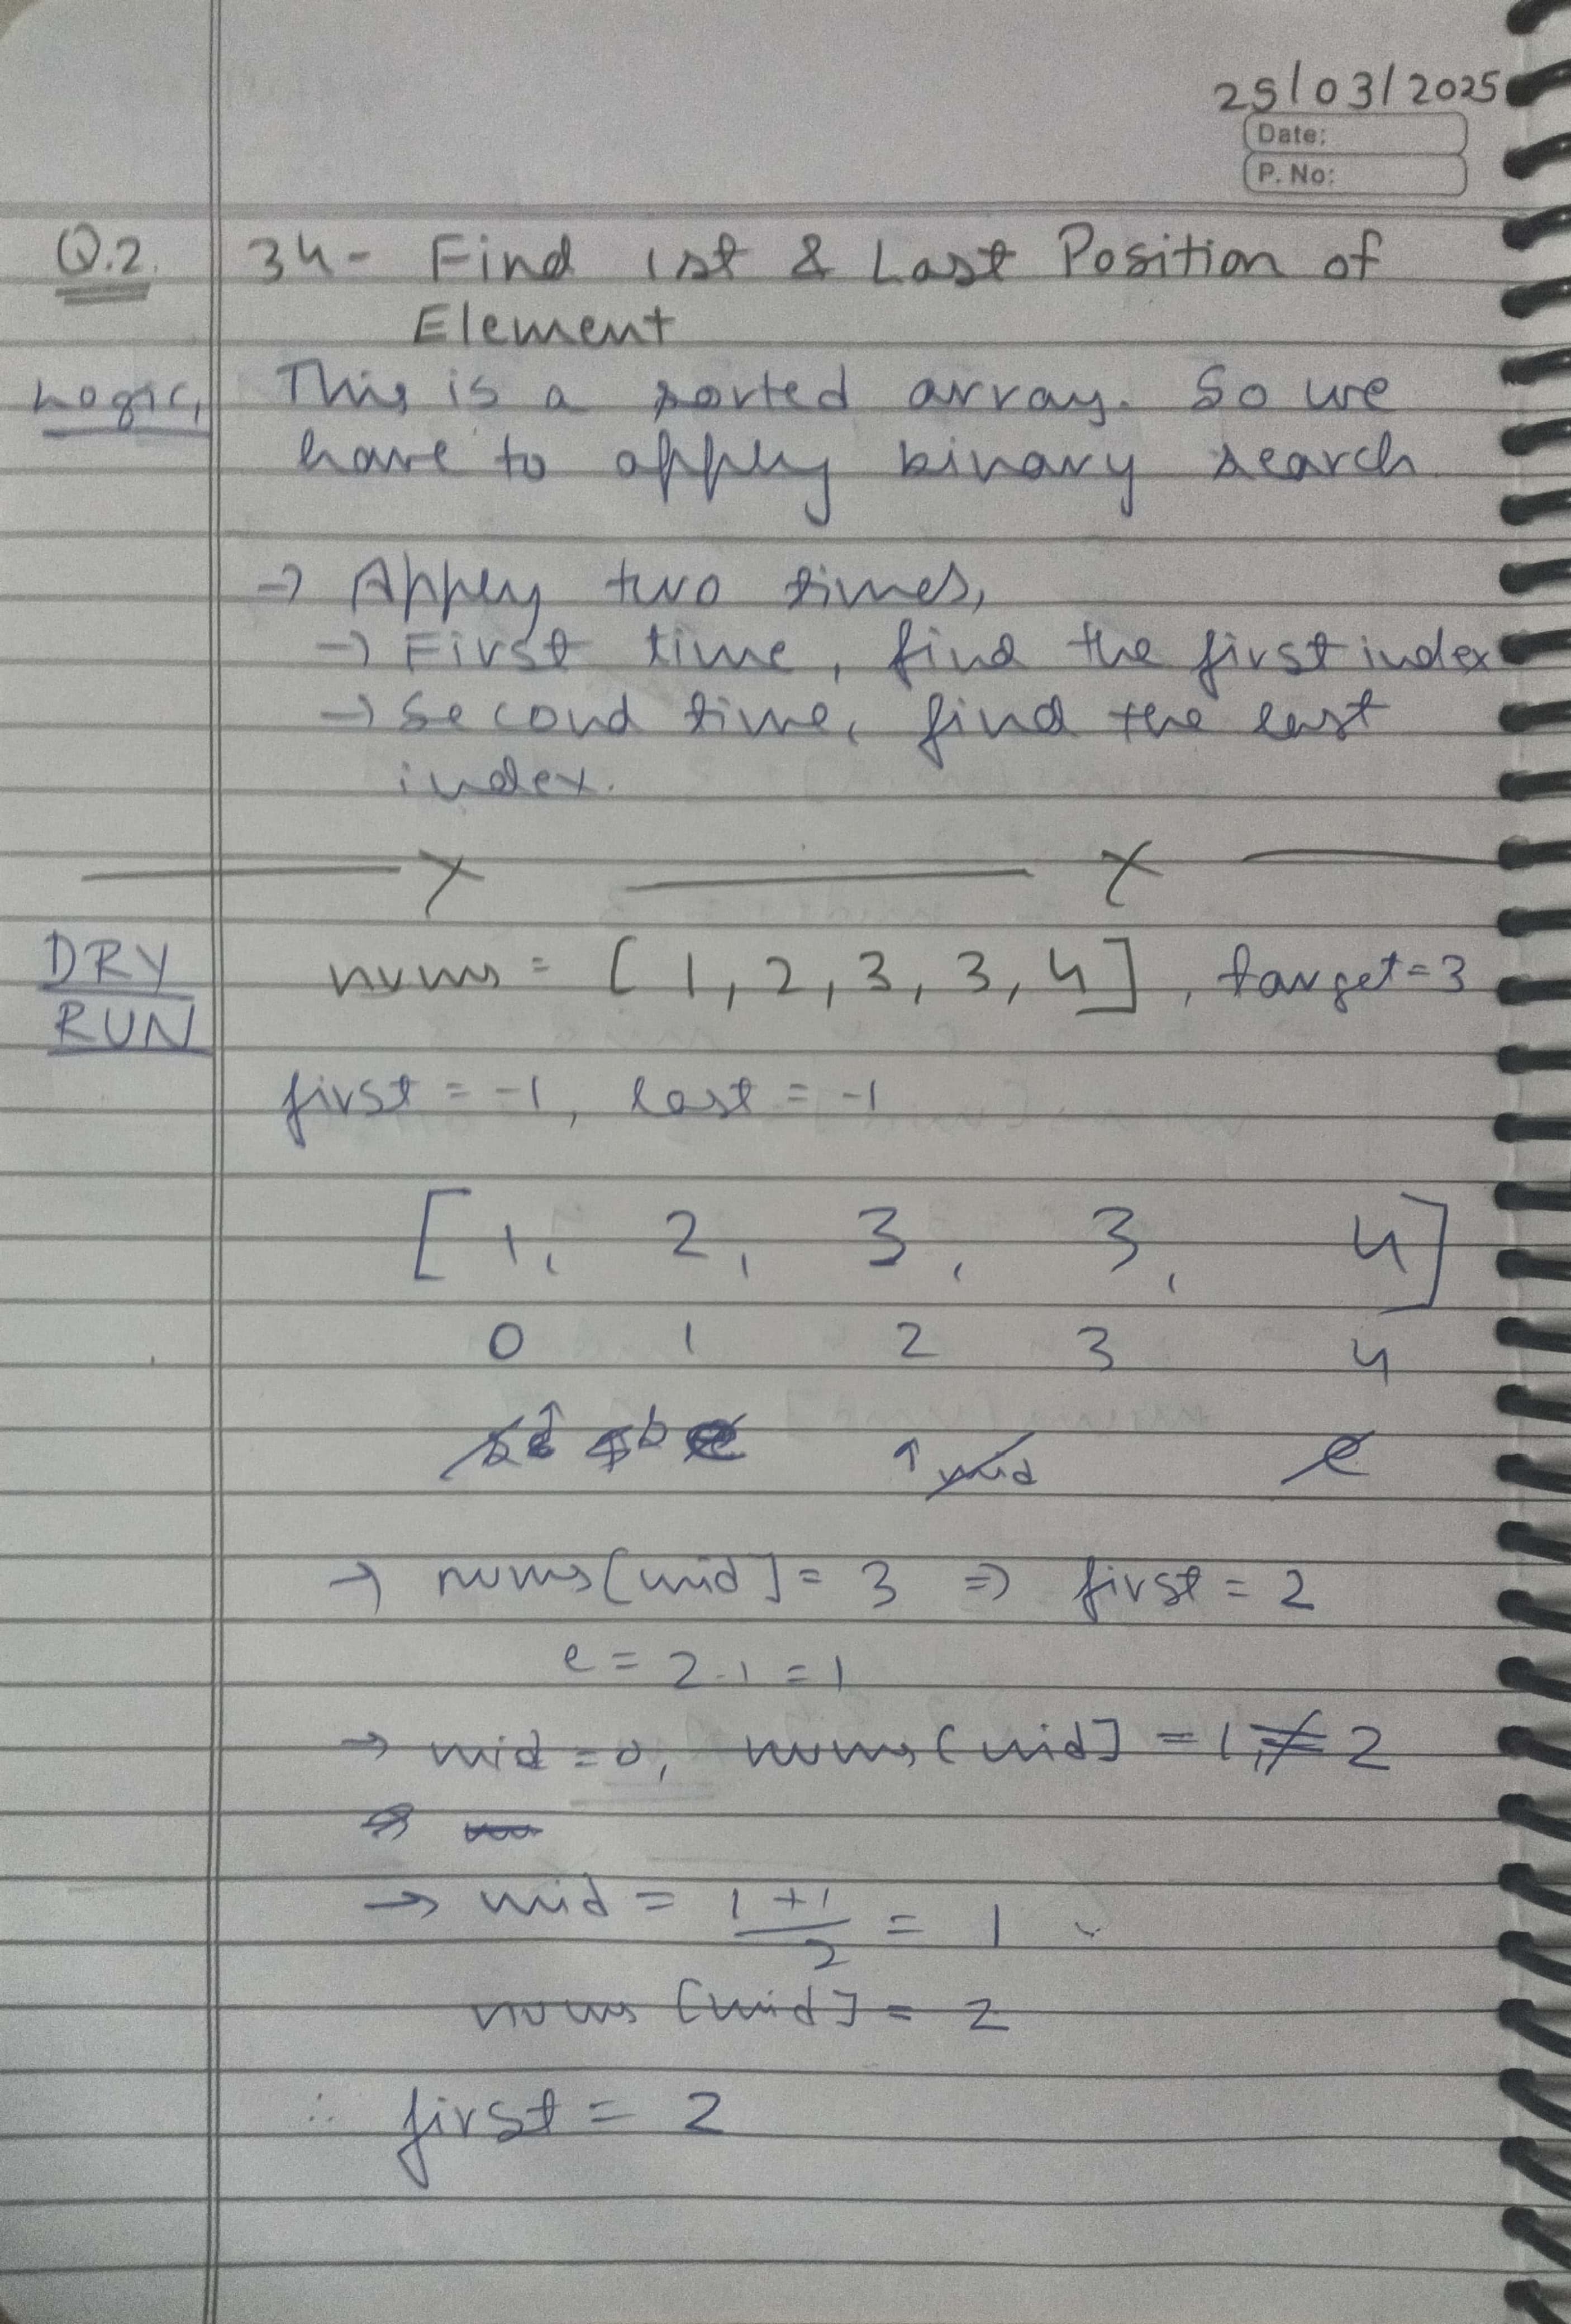 25/03/2025
Date:
P. No:
Q.2. 34- Find 1st & Last Position of
Element
Logic, This is a sorted array. So we
have to apply binary search
→ Apply two times,
→ First time, find the first index
→ Second time, find the last
index.
DRY RUN nums = [1, 2, 3, 3, 4], target=3
first = -1, last = -1
[1, 2, 3, 3, 4]
0 1 2 3 4
↑ b ↑ mid e
→ nums[mid] = 3 ⇒ first = 2
e = 2-1 = 1
→ mid = 0, nums[mid] = 1, ≠ 2
→ mid = 1+1/2 = 1
nums[mid] = 2
∴ first = 2